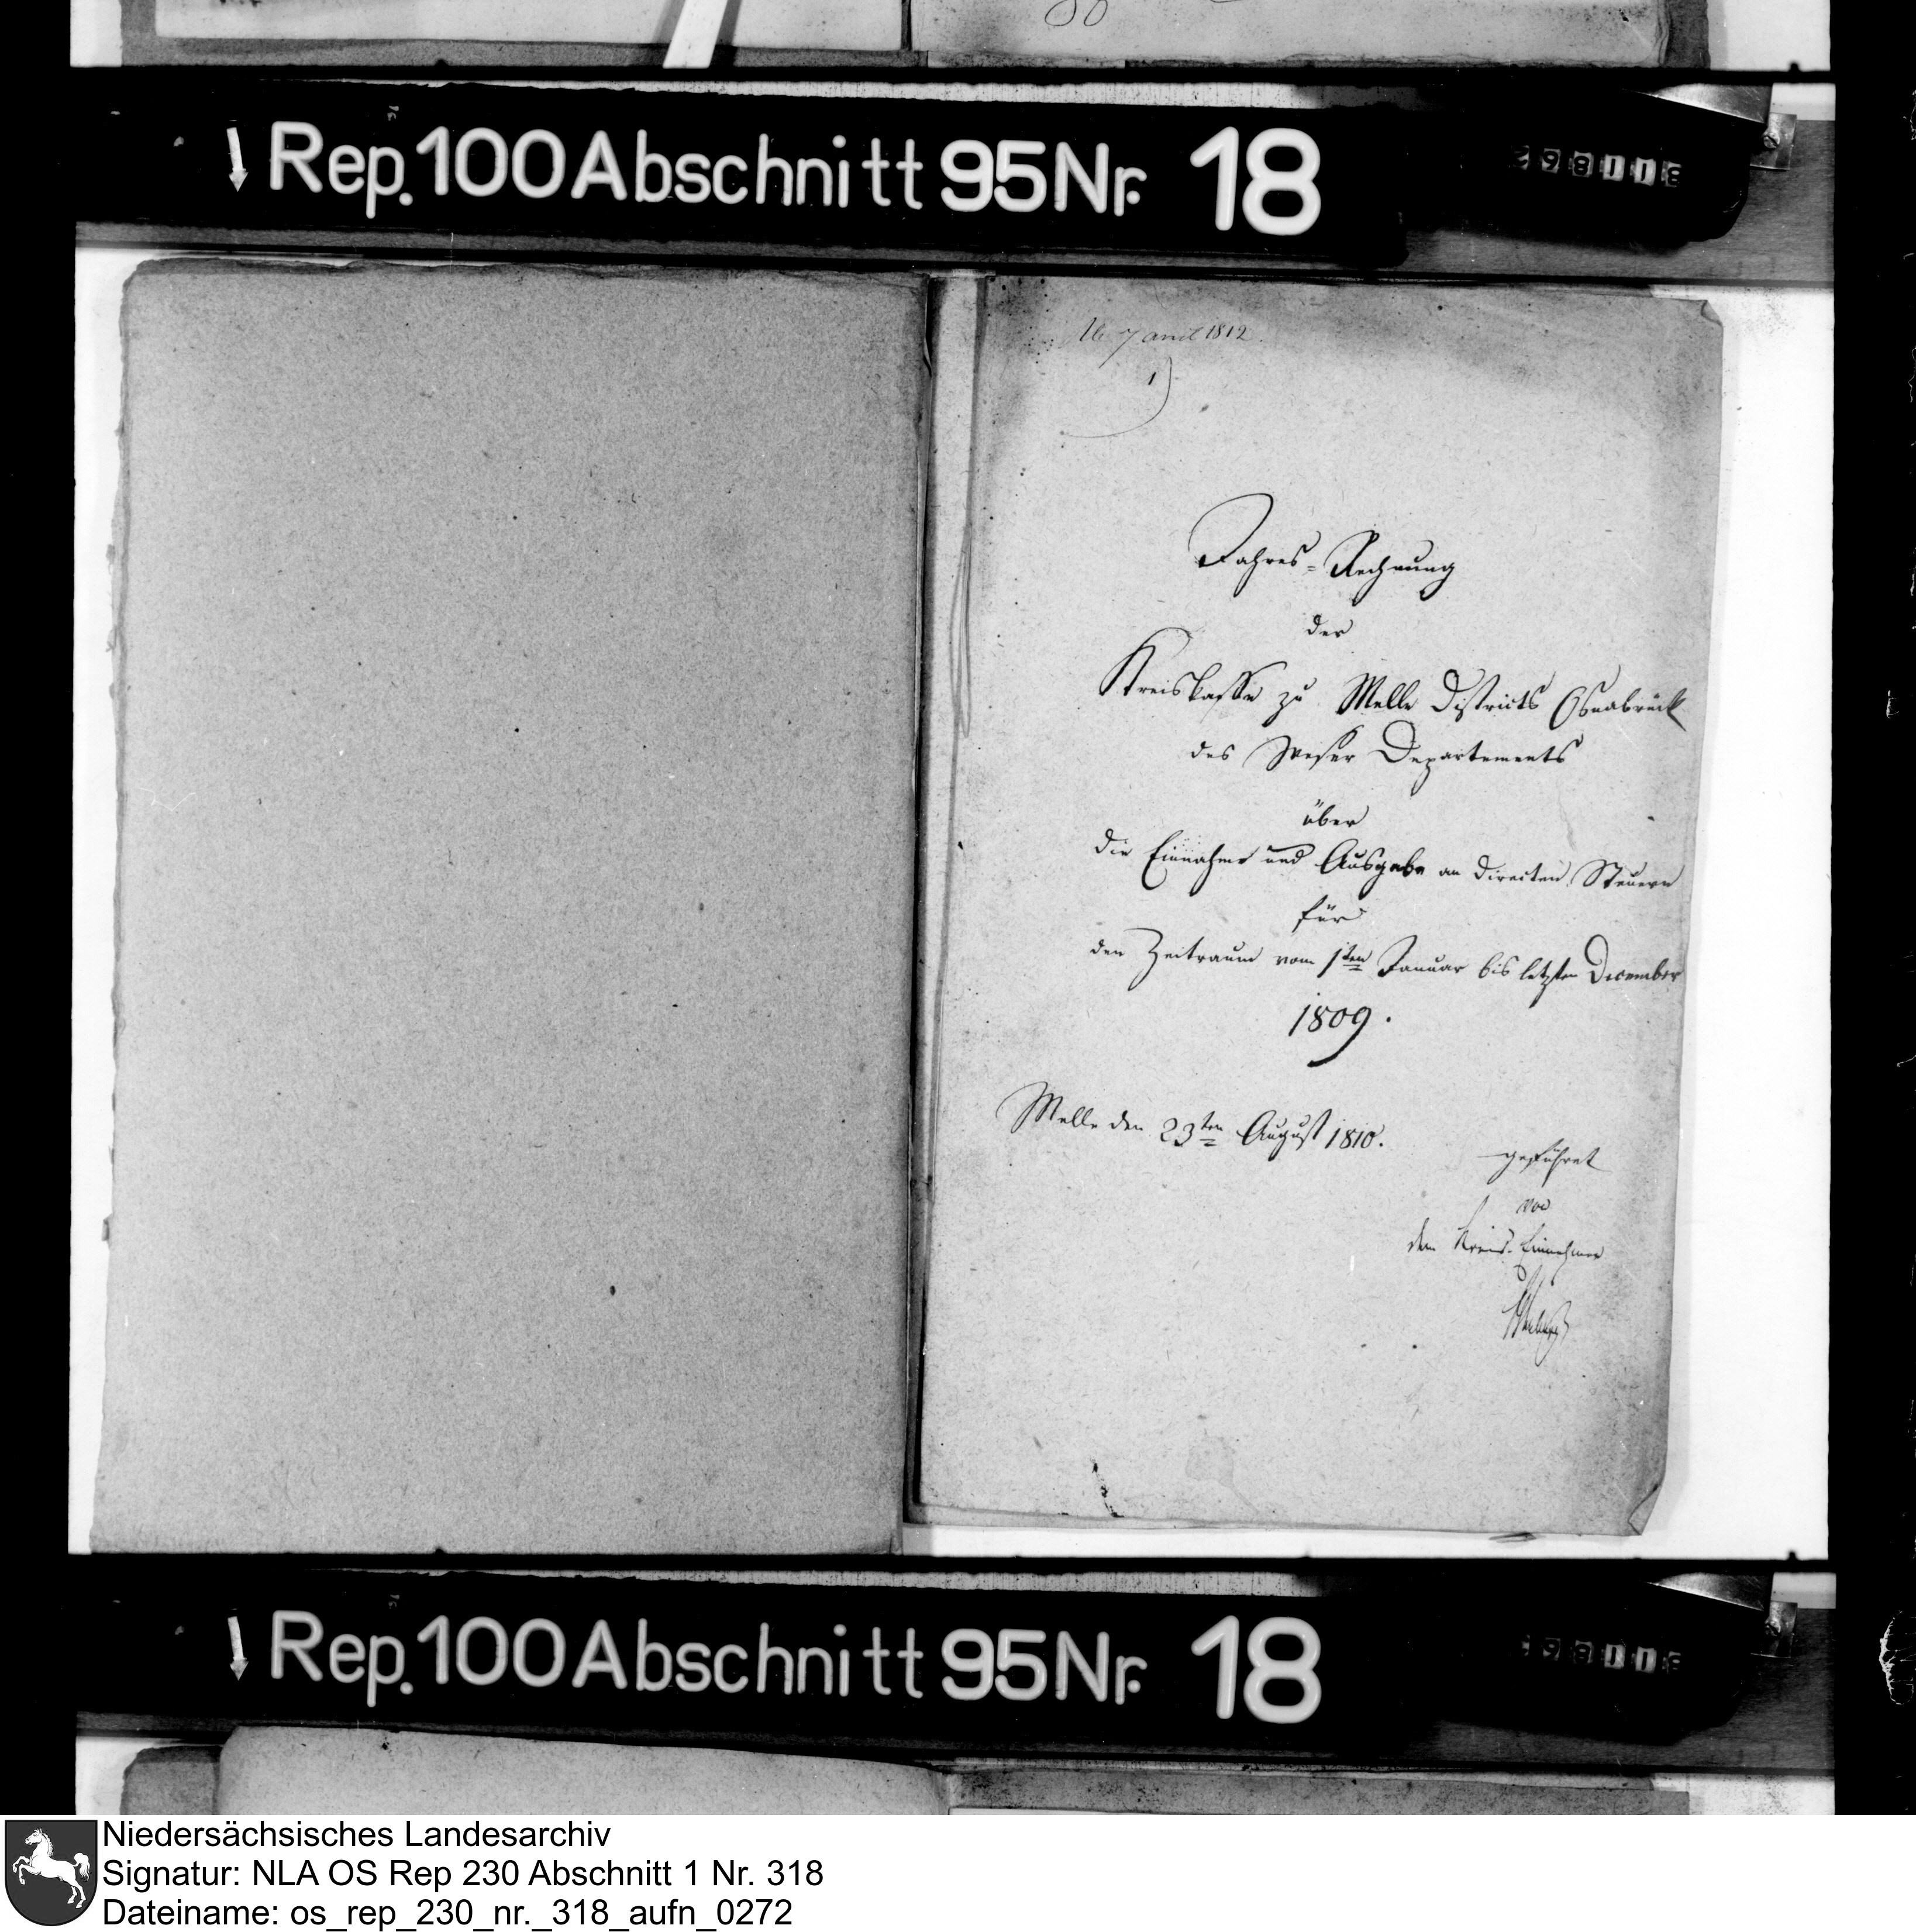 Rep. 100 Abschnitt 95 Nr. 18
16 1812.
1)
Jahres-Rechnung
der
Kreiskasse zu Melle Districts Osnabrück
des Weser Departements
über
die Einnahme und Ausgabe an directen Steuern
für
den Zeitraum vom 1ten Januar bis letzten December
1809.
Melle den 23ten August 1810.
geführet
von
dem Kreis-Einnehmer
Rep. 100 Abschnitt 95 Nr. 18
Niedersächsisches Landesarchiv
Signatur: NLA OS Rep 230 Abschnitt 1 Nr. 318
Dateiname: os_rep_230_nr._318_aufn_0272